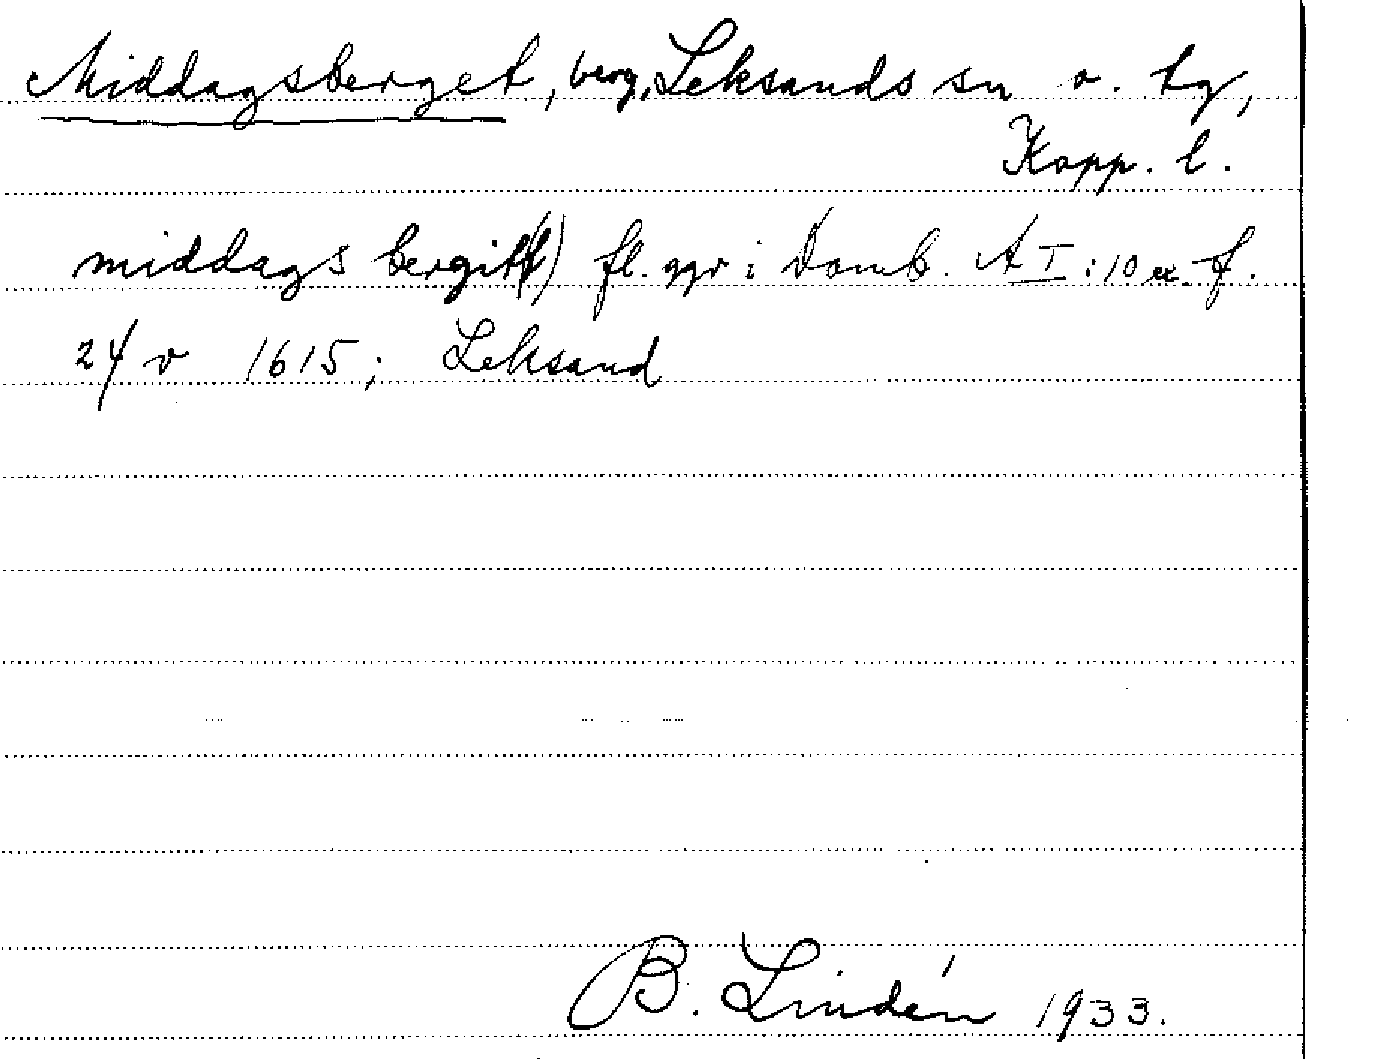 Middagsberget, berg, Leksands sn o. tg,
Kopp. l.
middags bergit(t) fl. ggr i Domb. A I:10 f.
24 v 1615; Leksand
B. Lindén 1933.